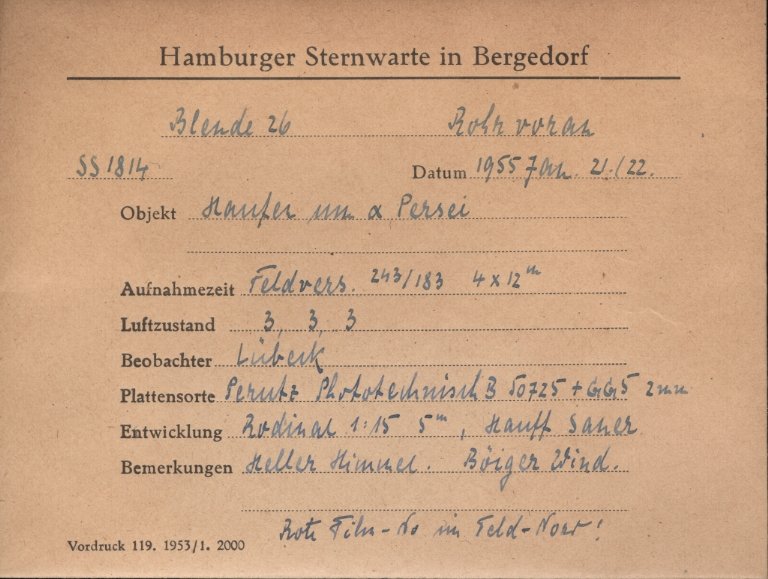 Hamburger Sternwarte in Bergedorf
Blende 26 Rohr voran
SS 1814 Datum 1955 Jan. 21./22.
Objekt Haufen um α Persei
Aufnahmezeit Feldvers. 243/183 4 x 12ᵐ
Luftzustand 3, 3, 3
Beobachter Lübeck
Plattensorte Perutz Phototechnisch B 50725 + GG5 2mm
Entwicklung Rodinal 1:15 5ᵐ, Hauff Sauer
Bemerkungen Heller Himmel. Böiger Wind.
Rote Film-No im Feld-Nord!
Vordruck 119. 1953/1. 2000